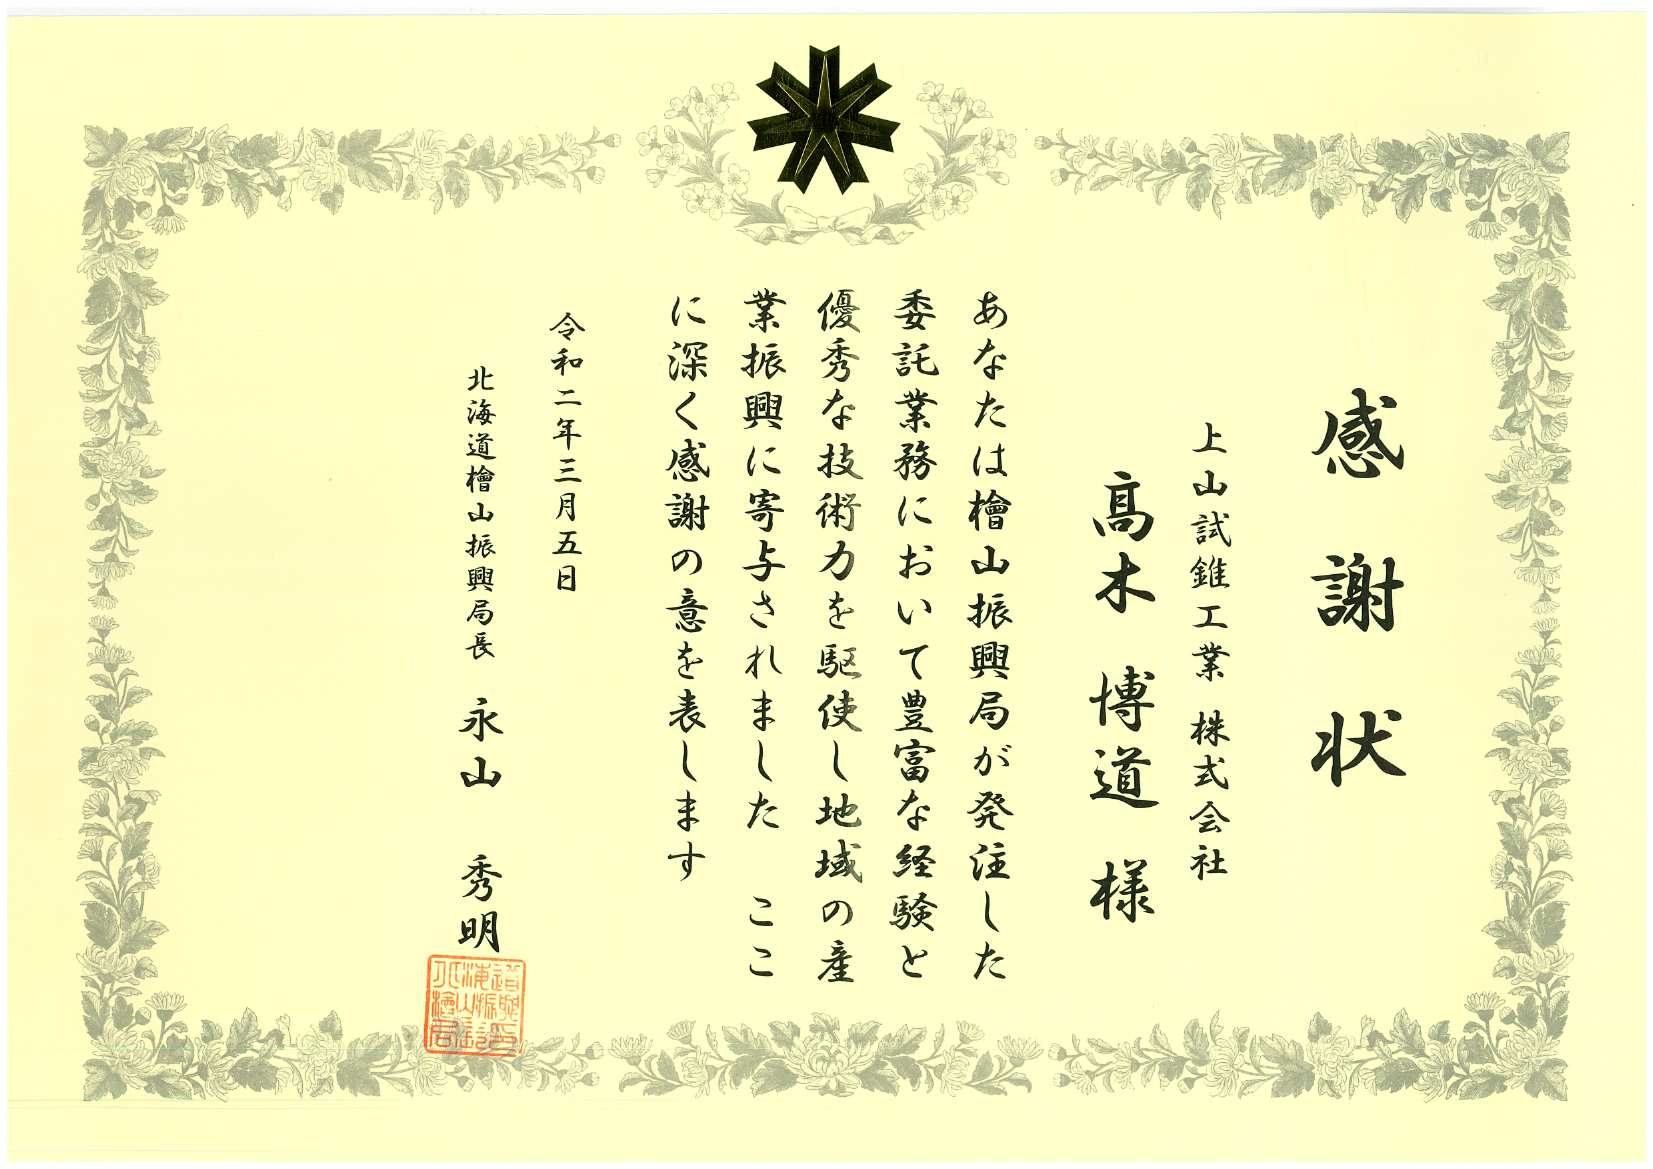 感謝状
上山試錐工業 株式会社
髙木 博道 様
あなたは檜山振興局が発注した
委託業務において豊富な経験と
優秀な技術力を駆使し地域の産
業振興に寄与されました ここ
に深く感謝の意を表します
令和二年三月五日
北海道檜山振興局長 永山 秀明